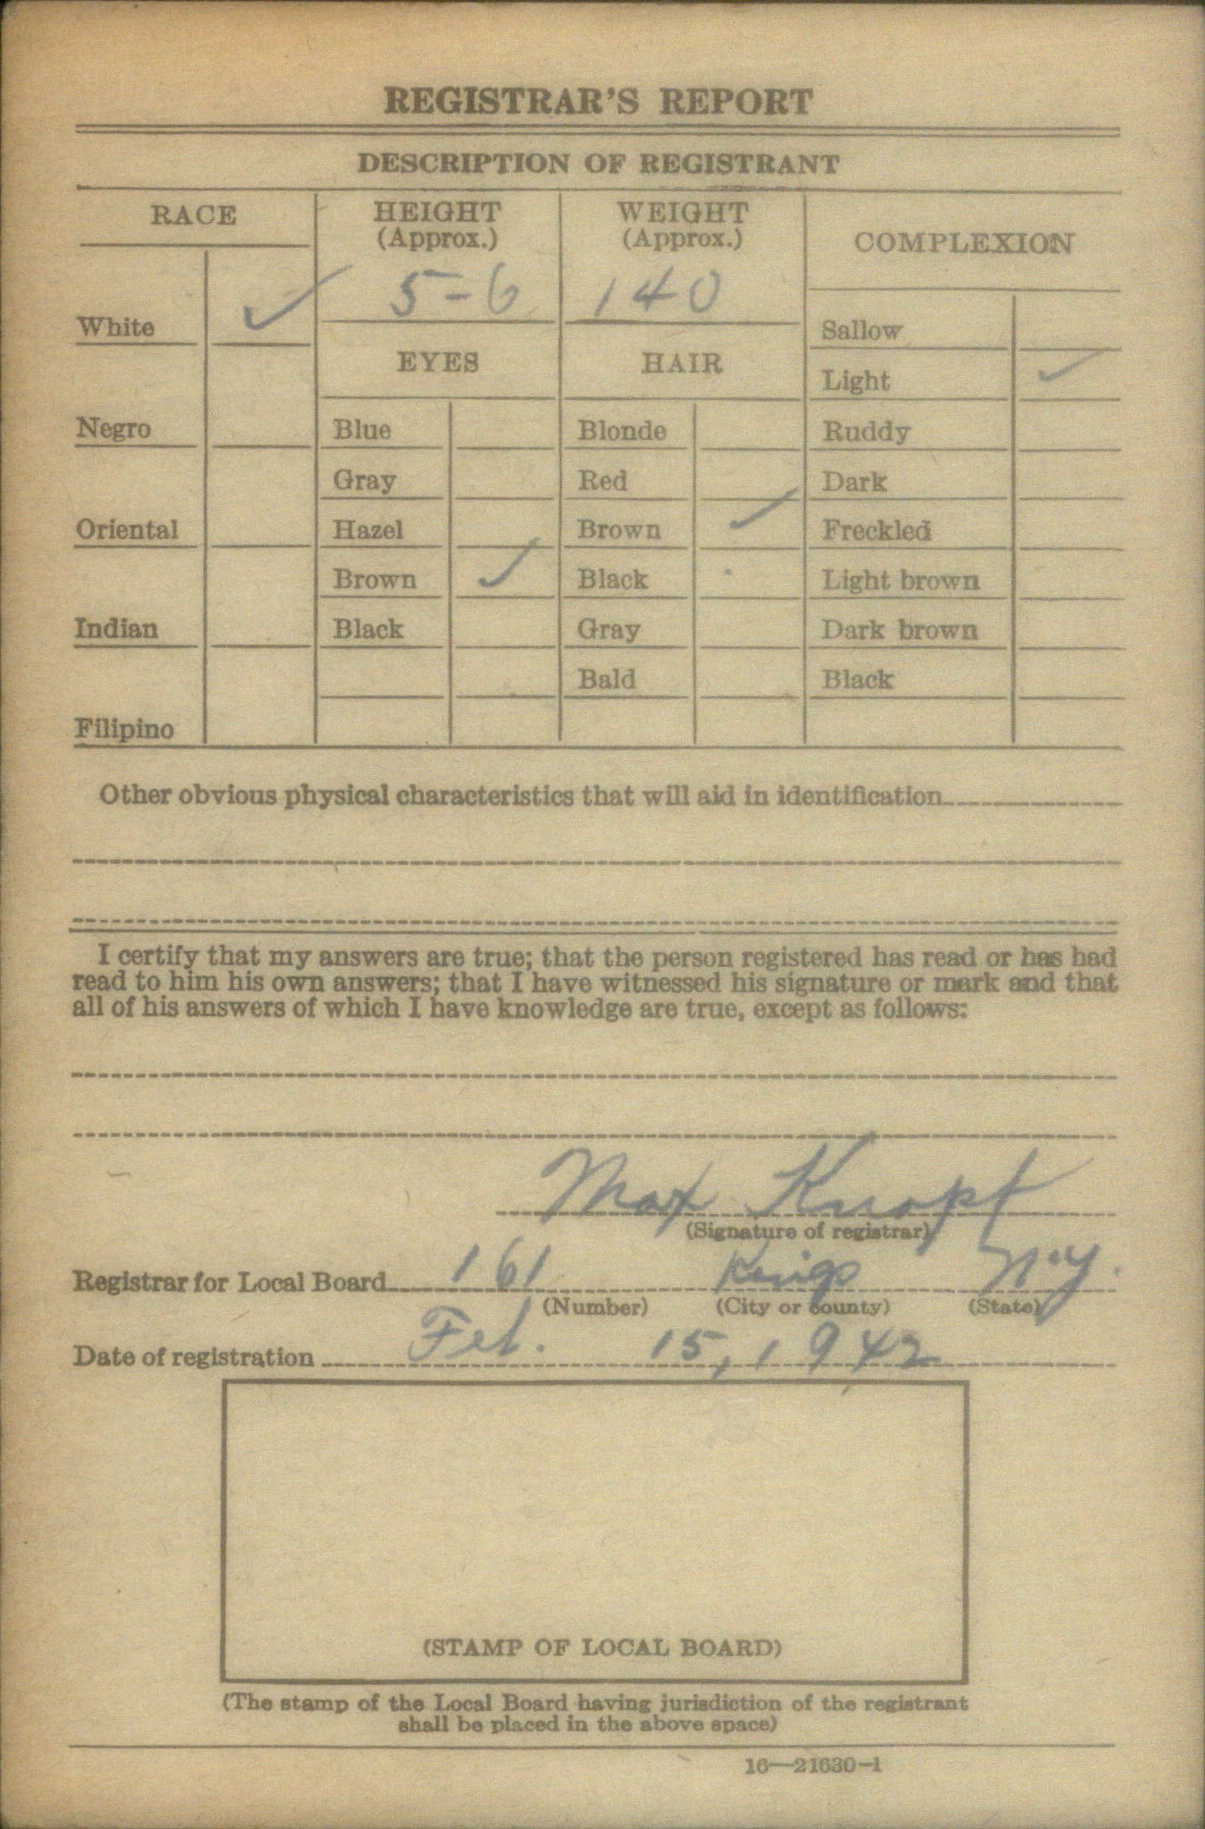 REGISTRAR'S REPORT
DESCRIPTION OF REGISTRANT
RACE
HEIGHT
(Approx.)
WEIGHT
(Approx.)
COMPLEXION
5-6
140
White ✓
Sallow
EYES
HAIR
Light ✓
Negro
Blue
Blonde
Ruddy
Gray
Red
Dark
Oriental
Hazel
Brown ✓
Freckled
Brown ✓
Black
Light brown
Indian
Black
Gray
Dark brown
Bald
Black
Filipino
Other obvious physical characteristics that will aid in identification
I certify that my answers are true; that the person registered has read or has had
read to him his own answers; that I have witnessed his signature or mark and that
all of his answers of which I have knowledge are true, except as follows:
Max Knopf
(Signature of registrar)
Registrar for Local Board 161 Kings N.Y.
(Number) (City or county) (State)
Date of registration Feb. 15, 1942
(STAMP OF LOCAL BOARD)
(The stamp of the Local Board having jurisdiction of the registrant
shall be placed in the above space)
16—21630-1